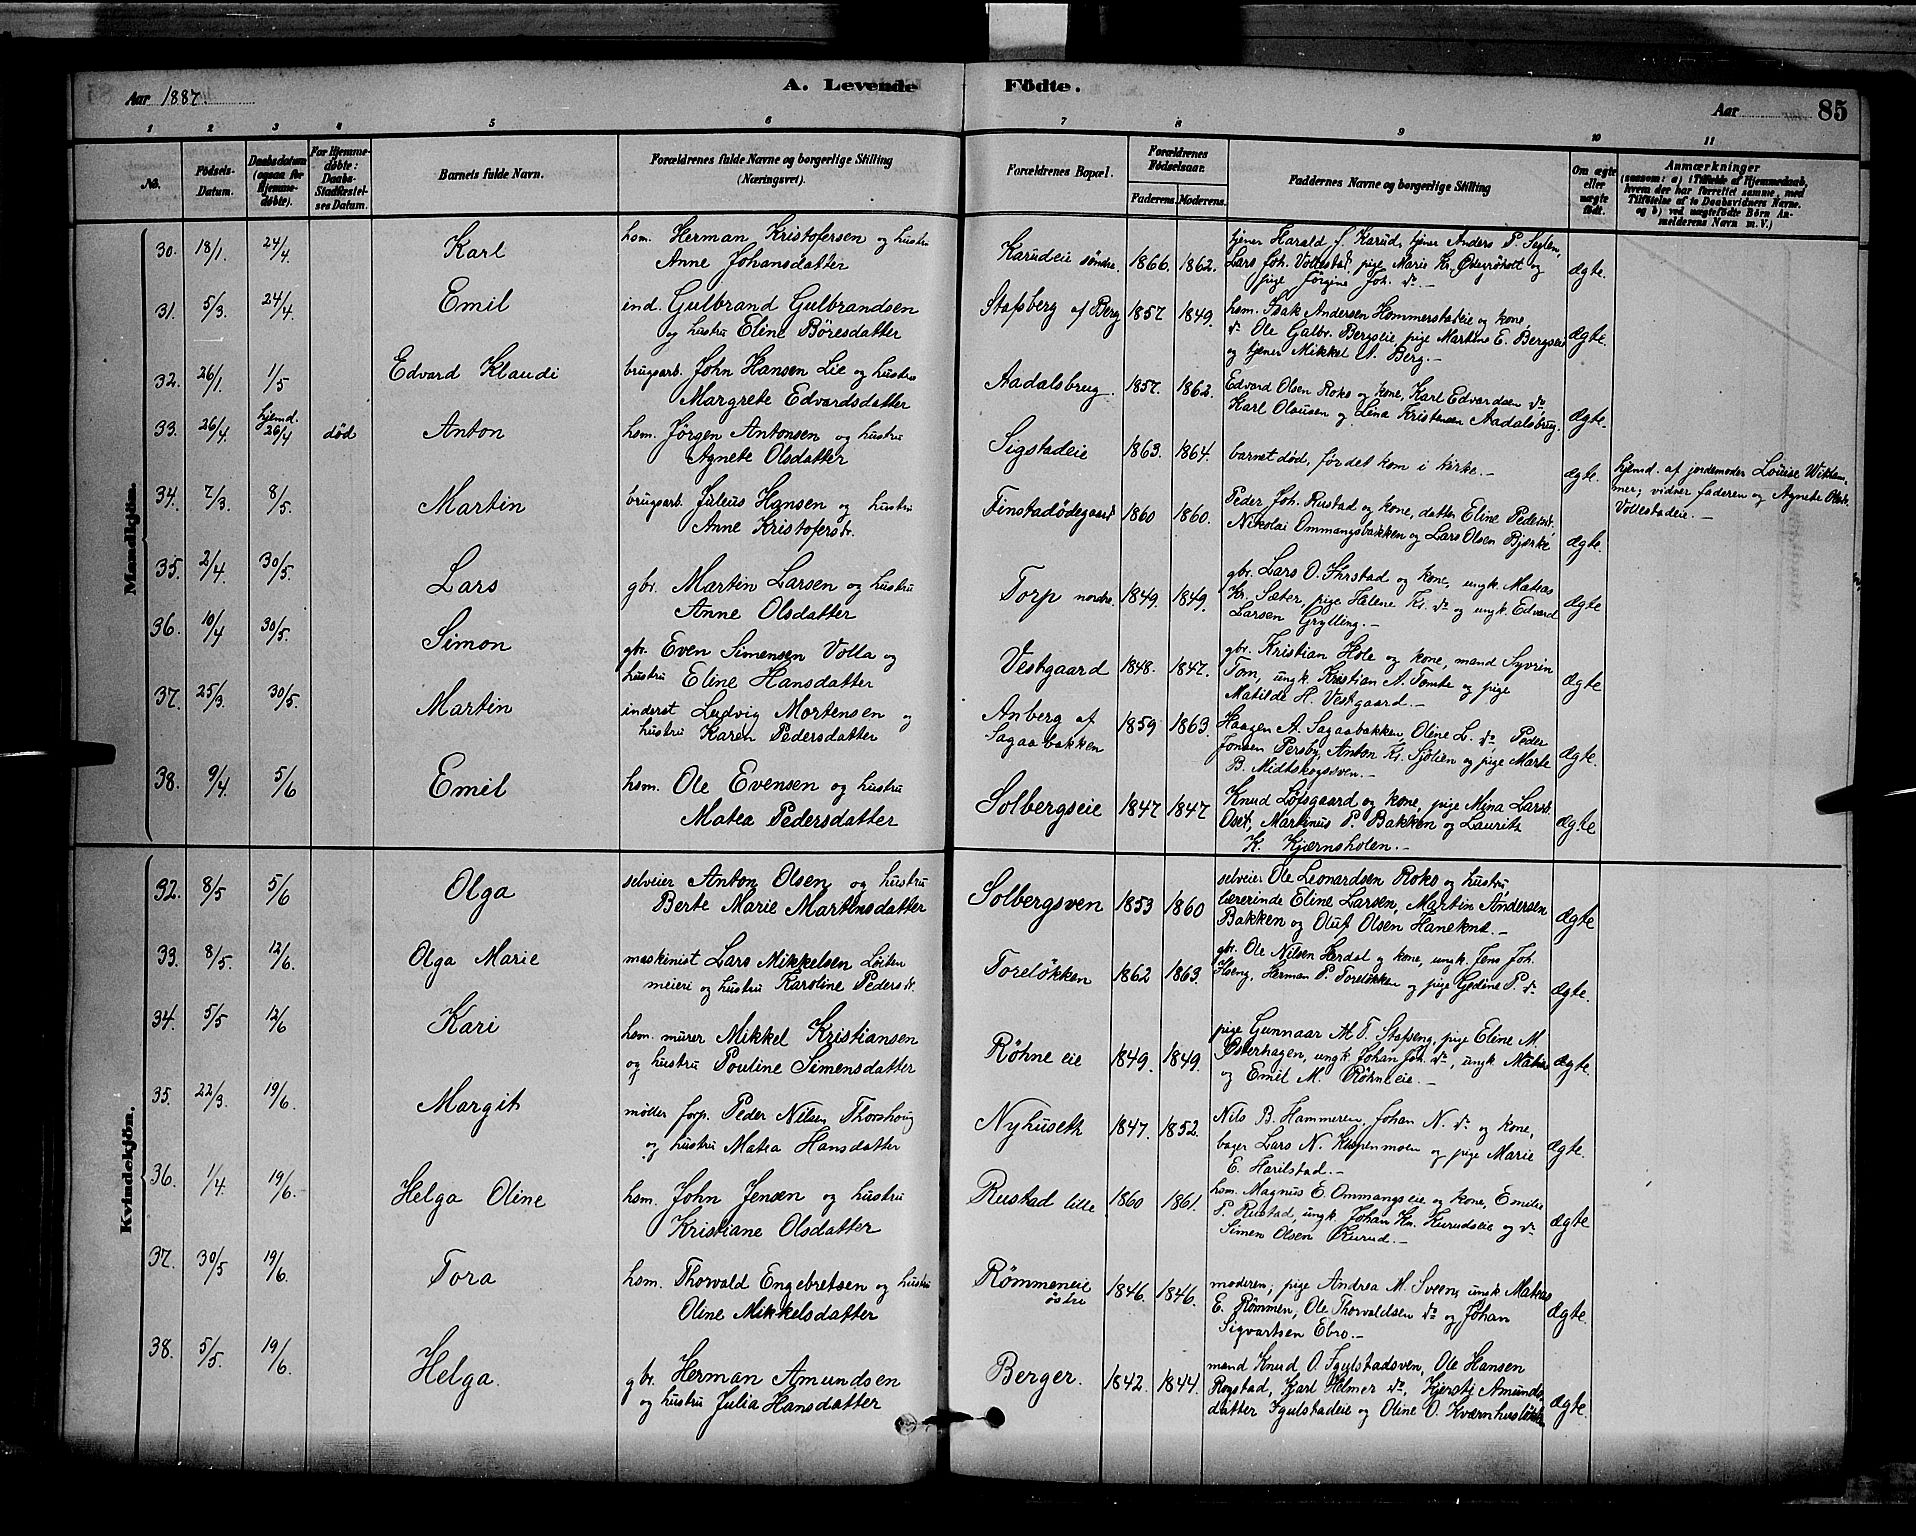 Aar 1887.
A. Levende Födte.
Aar 85
1 2 3 4 5 6 7 8 9 10 11
No. Födsels-Datum. Daabsdatum (ogsaa for Hjemmedøbte). For Hjemmedøbte: Daabs-Stadfæstelses Datum. Barnets fulde Navn. Forældrenes fulde Navne og borgerlige Stilling (Næringsvei). Forældrenes Bopæl. Forældrenes Födselsaar. Faderens. Moderens. Faddernes Navne og borgerlige Stilling Om ægte eller uægte født. Anmærkninger (saasom: a) i Tilfælde af Hjemmedaab, hvem der har forrettet samme, med Tilføielse af to Daabsvidners Navne. og b) ved uægtefødte Börn Anmelderens Navn m. V.)
Mandkjön.
30. 18/1 24/4. Karl hsm. Herman Kristofersen og hustru
Anne Johansdatter Karudeie søndre. 1866. 1862. tjener Harald J. Karud, tjener Anders P. Seglen,
Lars Joh. Vollestad, pige Marie Kr. og
pige Jørgine Joh. do. Ægte.
31. 5/3. 24/4. Emil ind. Gulbrand Gulbrandsen
og hustru Eline Böresdatter Stafsberg af Berg 1857 1849. hsm. Isak Andersen Hommerstadeie og kone
do Ole Galbr. Bergseie, pige Martine E. Bergseie
og tjener Mikkel A. Berg. Ægte.
32. 26/1. 1/5 Edvard Klaudi brugsarb. John Hansen Lie og hustru
Margrete Edvardsdatter Aadalsbrug. 1857. 1862. Edvard Olsen Roko og kone, Karl Edvardsen do,
Karl Olausen og Lina Kristensen Aadalsbrug. Ægte.
33. 26/4. hjemd. 26/4 död Anton hsm. Jörgen Antonsen og hustru
Agnete Olsdatter Sigstadeie 1863. 1864. barnet död, för det kom i kirke. Ægte. hjemd. af jordemoder Louise
vidner faderen og Agnete
Vollestadeie.
34. 7/3. 8/5. Martin brugsarb. Juleus Hansen og hustru
Anne Kristofersdr. Finstadødegaard 1860 1860. Peder Joh. Rustad og kone, datter Eline Pedersdr.
Nikolai Ommangsbakken og Lars Olsen Bjerke Ægte.
35. 2/4. 30/5. Lars gbr. Martin Larsen og hustru
Anne Olsdatter Torp nordre. 1849. 1849. gbr. Lars O. og kone, ungk. Mateas
Kr. Sæter, pige Helene Kr. do og ungk. Edvard
Larsen Grylling. Ægte
36. 10/4 30/5. Simon gbr. Even Simensen Volla og
hustru Eline Hansdatter Vestgaard 1848. 1847. gbr. Kristian Hole og kone, mand Syvrin
Tom, ungk. Kristian A. Tomte og pige
Matilde H. Vestgaard. Ægte
37. 25/3. 30/5. Martin inderst Ludvig Mortensen og
hustru Karen Pedersdatter Anberg af
Sagaabakken 1859 1863. Haagen A. Sagaabakken, Oline L. do, Peder
Jonsen Persby, Anton Kr. Sjölien og pige Marte
B. Midtskogsven. Ægte.
38. 9/4 5/6 Emil hsm. Ole Evensen og hustru
Matea Pedersdatter Solbergseie 1847 1847 Knud Løfsgaard og kone, pige Mina Larsdr.
Oset, Martinus P. Bakken og Laurits
K. Kjærnsholen. Ægte
Kvindekjön.
32. 8/5 5/6 Olga selveier Anton Olsen og hustru
Berte Marie Martinsdatter Solbergsven 1853 1860 selveier Ole Leonardsen Roko og hustru,
lærerinde Eline Larsen, Martin Andersen
Bakken og Oluf Olsen Haneknd. Ægte
33. 8/5. 12/6. Olga Marie maskinist Lars Mikkelsen Löiten
meieri og hustru Karoline Pedersdr. Toreløkken 1862 1863. gbr. Ole Nilsen Herdal og kone, ungk. Jens Joh.
Hseng, Herman P. Toreløkken og pige Gjedine P. do Ægte.
34. 5/5 12/6 Kari hsm. murer Mikkel Kristiansen
og hustru Pouline Simensdatter Röhne eie 1849. 1849. pige Gunnaar M. T. Stafseng, pige Eline M.
Østerhagen, ungk. Johan Joh. do, ungk. Matias
og Emil M. Röhneeie. Ægte.
35. 22/3. 19/6. Margit möller forp. Peder Nilsen Thorshoug
og hustru Matea Hansdatter Nyhuseth 1847. 1852. Nils B. Hammeren, Johan N. do og kone,
bager Lars N. og pige Marie
E. Harilstad. Ægte.
36. 1/4. 19/6. Helga Oline hsm. John Jensen og hustru
Kristiane Olsdatter Rustad lille 1860 1861. hsm. Magnus E. Ommangseie og kone, Emilie
P. Rustad, ungk. Johan Kr. Kurudseie og do
Simen Olsen Kurud. Ægte
37. 30/5 19/6. Tora hsm. Thorvald Engebretsen og hustru
Oline Mikkelsdatter Römmeneie
östre 1846. 1846. moderen, pige Andrea M. Sveen, ungk Mateas
E. Römmen, Ole Thorvaldsen do og Johan
Sigvartsen Ebro. Ægte.
38. 5/5. 19/6 Helga. gbr. Herman Amundsen
og hustru Julia Hansdatter Berger. 1842. 1844. mand Knud O. Igulstadsven, Ole Hansen
Rogstad, Karl Helmer do, Kjersti Amunds-
datter Igulstadeie og Oline O. Kværnhusløkken Ægte.